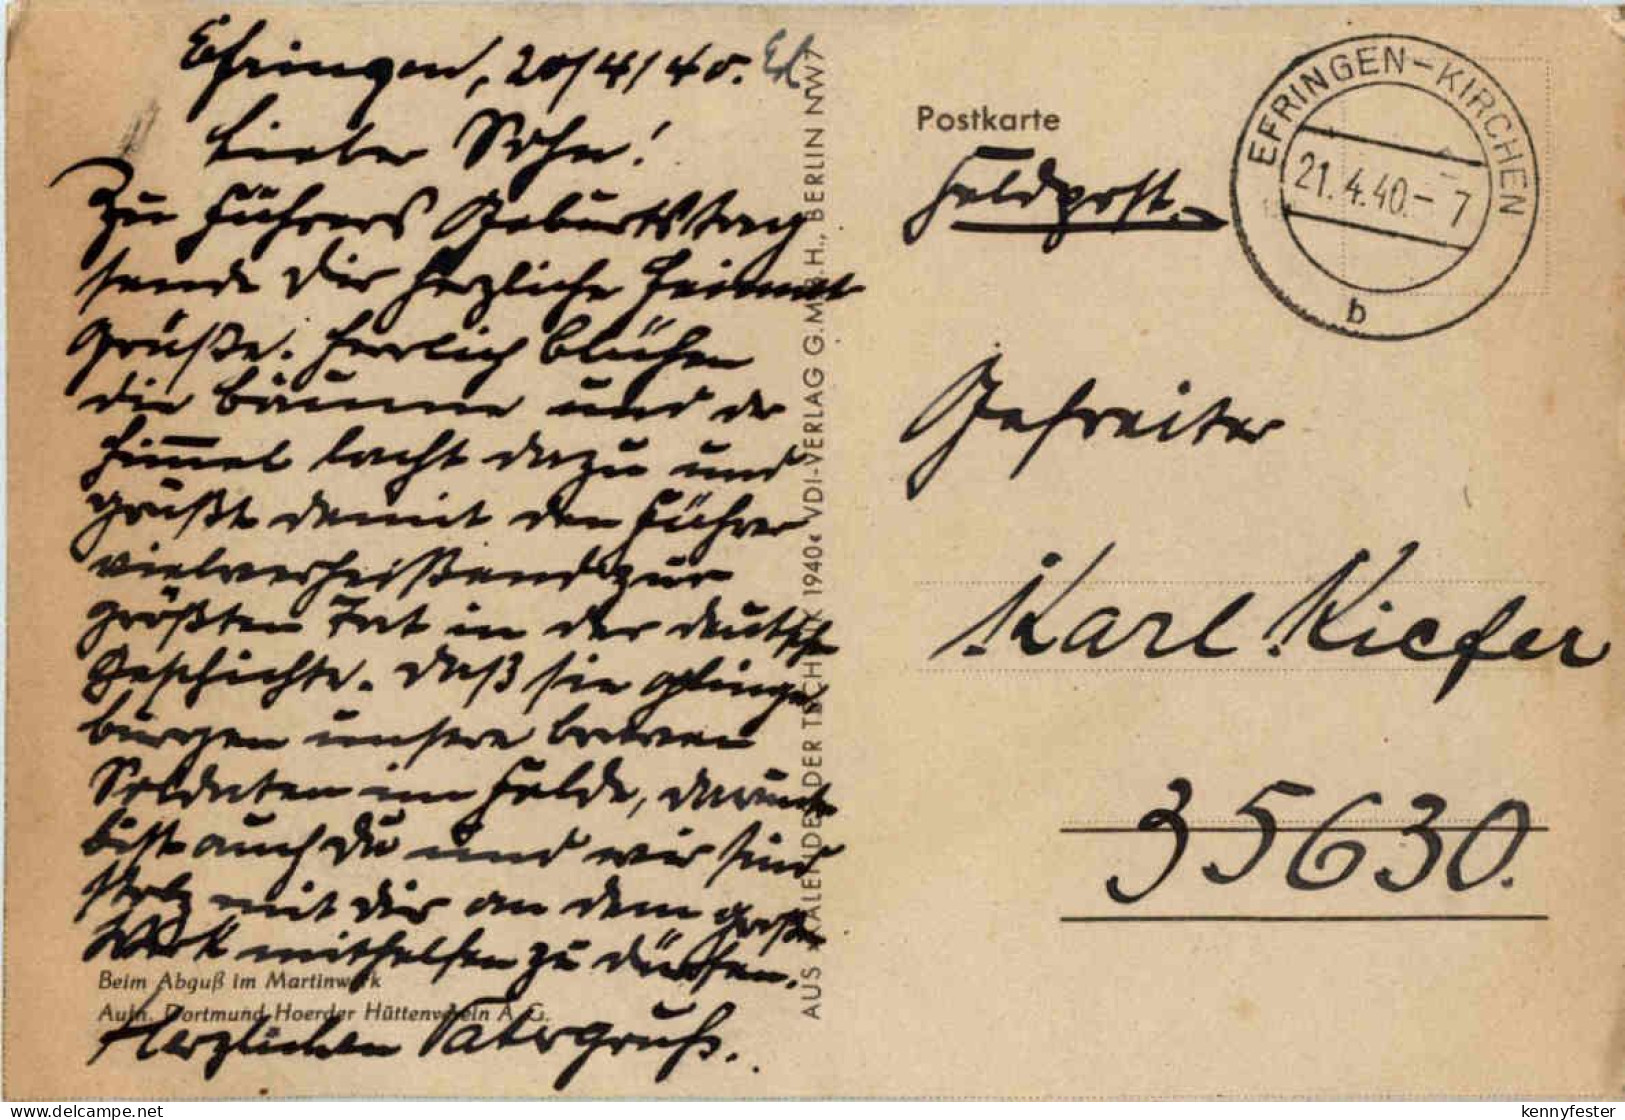 Efringen, 20/4/40.
Lieber Sohn!
Zu Führers Geburtstag
sende Dir herzliche Heimat
grüße. Herrlich blühen
die Bäume und der
Himmel lacht dazu und
grüßt damit den Führer
vielverheißend zur
größten Tat in der deutschen
Geschichte. Daß sie gelinge
bürgen unsere braven
Soldaten im Felde, darunter
bist auch Du und wir sind
stolz mit Dir an dem großen
Werk mithelfen zu dürfen.
Herzlichen Vatergruß.
Beim Abguß im Martinwerk
Aufn. Dortmund-Hoerder Hüttenverein A.G.
AUS »KALENDER DER TECHNIK 1940« VDI-VERLAG G.M.B.H., BERLIN NW7
Postkarte
Feldpost.
EFRINGEN-KIRCHEN
21.4.40.-7
b
Gefreiter
Karl Kiefer
35630.
kennyfester